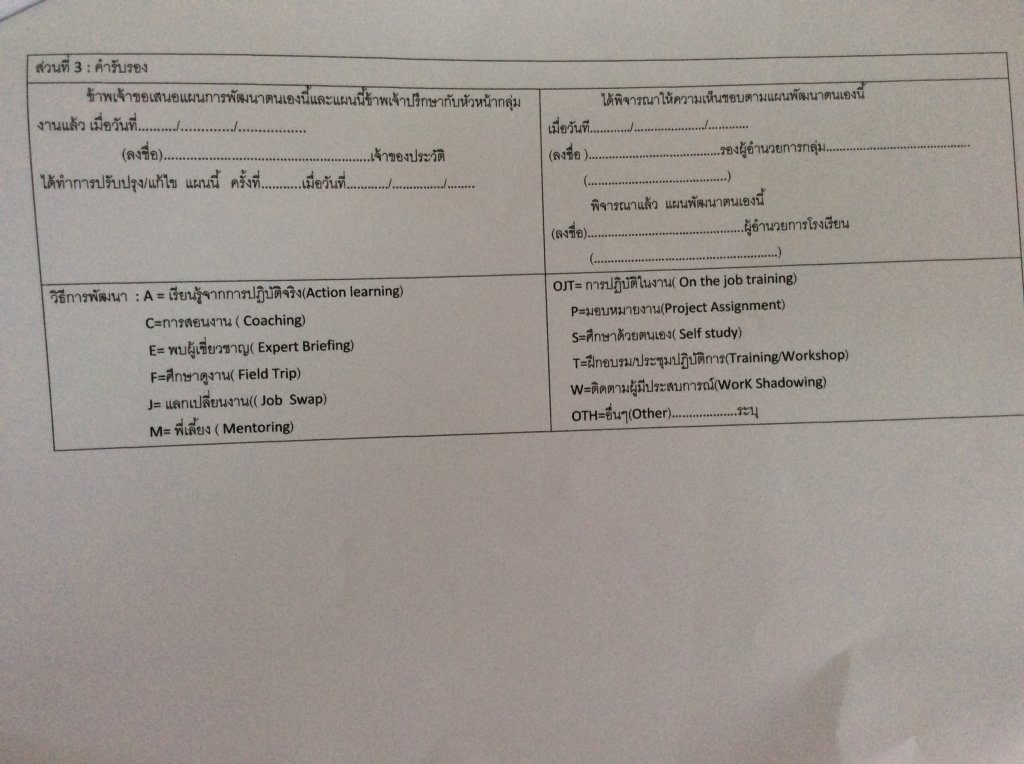 ส่วนที่ 3 : คำรับรอง
ข้าพเจ้าขอเสนอแผนการพัฒนาตนเองนี้และแผนนี้ข้าพเจ้าปรึกษากับหัวหน้ากลุ่ม
งานแล้ว เมื่อวันที่........../............../..................
(ลงชื่อ).....................................................เจ้าของประวัติ
ได้ทำการปรับปรุง/แก้ไข แผนนี้ ครั้งที่...........เมื่อวันที่.........../............../........
ได้พิจารณาให้ความเห็นชอบตามแผนพัฒนาตนเองนี้
เมื่อวันที่.........../...................../............
(ลงชื่อ )....................................รองผู้อำนวยการกลุ่ม........................................
(........................................)
พิจารณาแล้ว แผนพัฒนาตนเองนี้
(ลงชื่อ)............................................ผู้อำนวยการโรงเรียน
(....................................................)
วิธีการพัฒนา : A = เรียนรู้จากการปฏิบัติจริง(Action learning)
C=การสอนงาน ( Coaching)
E= พบผู้เชี่ยวชาญ( Expert Briefing)
F=ศึกษาดูงาน( Field Trip)
J= แลกเปลี่ยนงาน(( Job Swap)
M= พี่เลี้ยง ( Mentoring)
OJT= การปฏิบัติในงาน( On the job training)
P=มอบหมายงาน(Project Assignment)
S=ศึกษาด้วยตนเอง( Self study)
T=ฝึกอบรม/ประชุมปฏิบัติการ(Training/Workshop)
W=ติดตามผู้มีประสบการณ์(WorK Shadowing)
OTH=อื่นๆ(Other)...................ระบุ